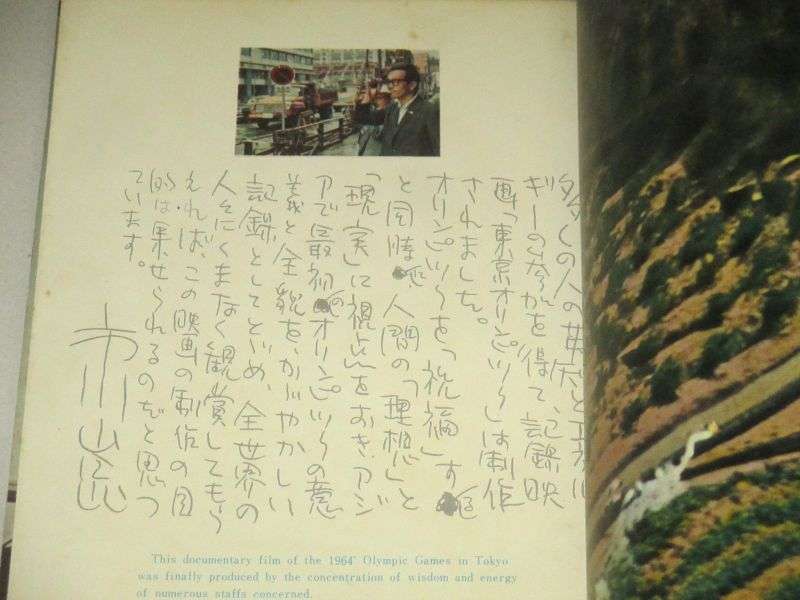 多くの人の英知とエネル
ギーの参加を得て、記録映
画「東京オリンピック」は制作
されました。
オリンピックを「祝福」する
と同時に、人間の「理想」と
「現実」に視点をおき、アジ
アで最初のオリンピックの意
義と全貌を、かがやかしい
記録としてとどめ、全世界の
人々にくまなく観賞してもら
えれば、この映画の制作の目
的は果せられるのだと思っ
ています。
市川崑
This documentary film of the 1964' Olympic Games in Tokyo
was finally produced by the concentration of wisdom and energy
of numerous staffs concerned.